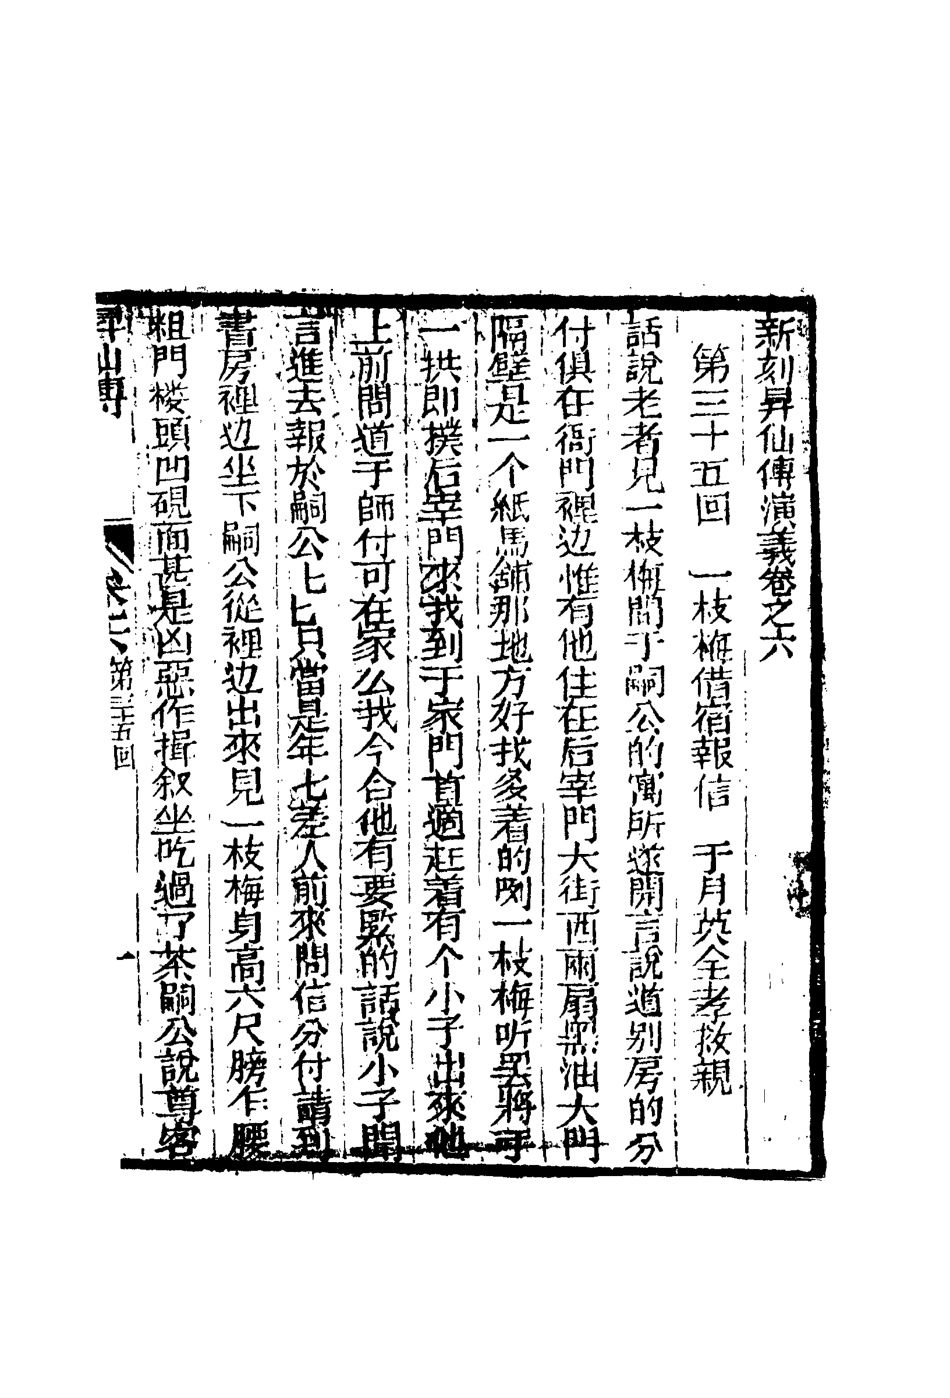 新刻昇仙傳演義卷之六
第三十五回　一枝梅借宿報信　于月英全孝救親
話說老者見一枝梅問于嗣公的寓所遂開言說道别房的分
付俱在衙門裡边惟有他住在后宰門大街西兩扇黑油大門
隔壁是一个紙馬鋪那地方好找多着的咧一枝梅听罢將手
一拱即撲后宰門來找到于家門首適赶着有个小子出來他
上前問道于師付可在家么我今合他有要緊的話說小子聞
言進去報於嗣公七七只當是年七差人前來問信分付請到
書房裡边坐下嗣公從裡边出來見一枝梅身高六尺膀乍腰
粗門楼頭凹硯面甚是凶惡作揖叙坐吃過了茶嗣公說尊客
昇仙傳　卷六　第三十五回　一